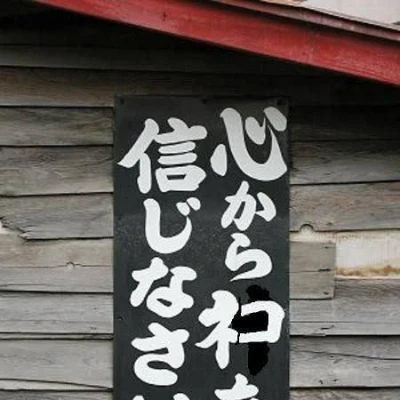 心からネコを
信じなさい